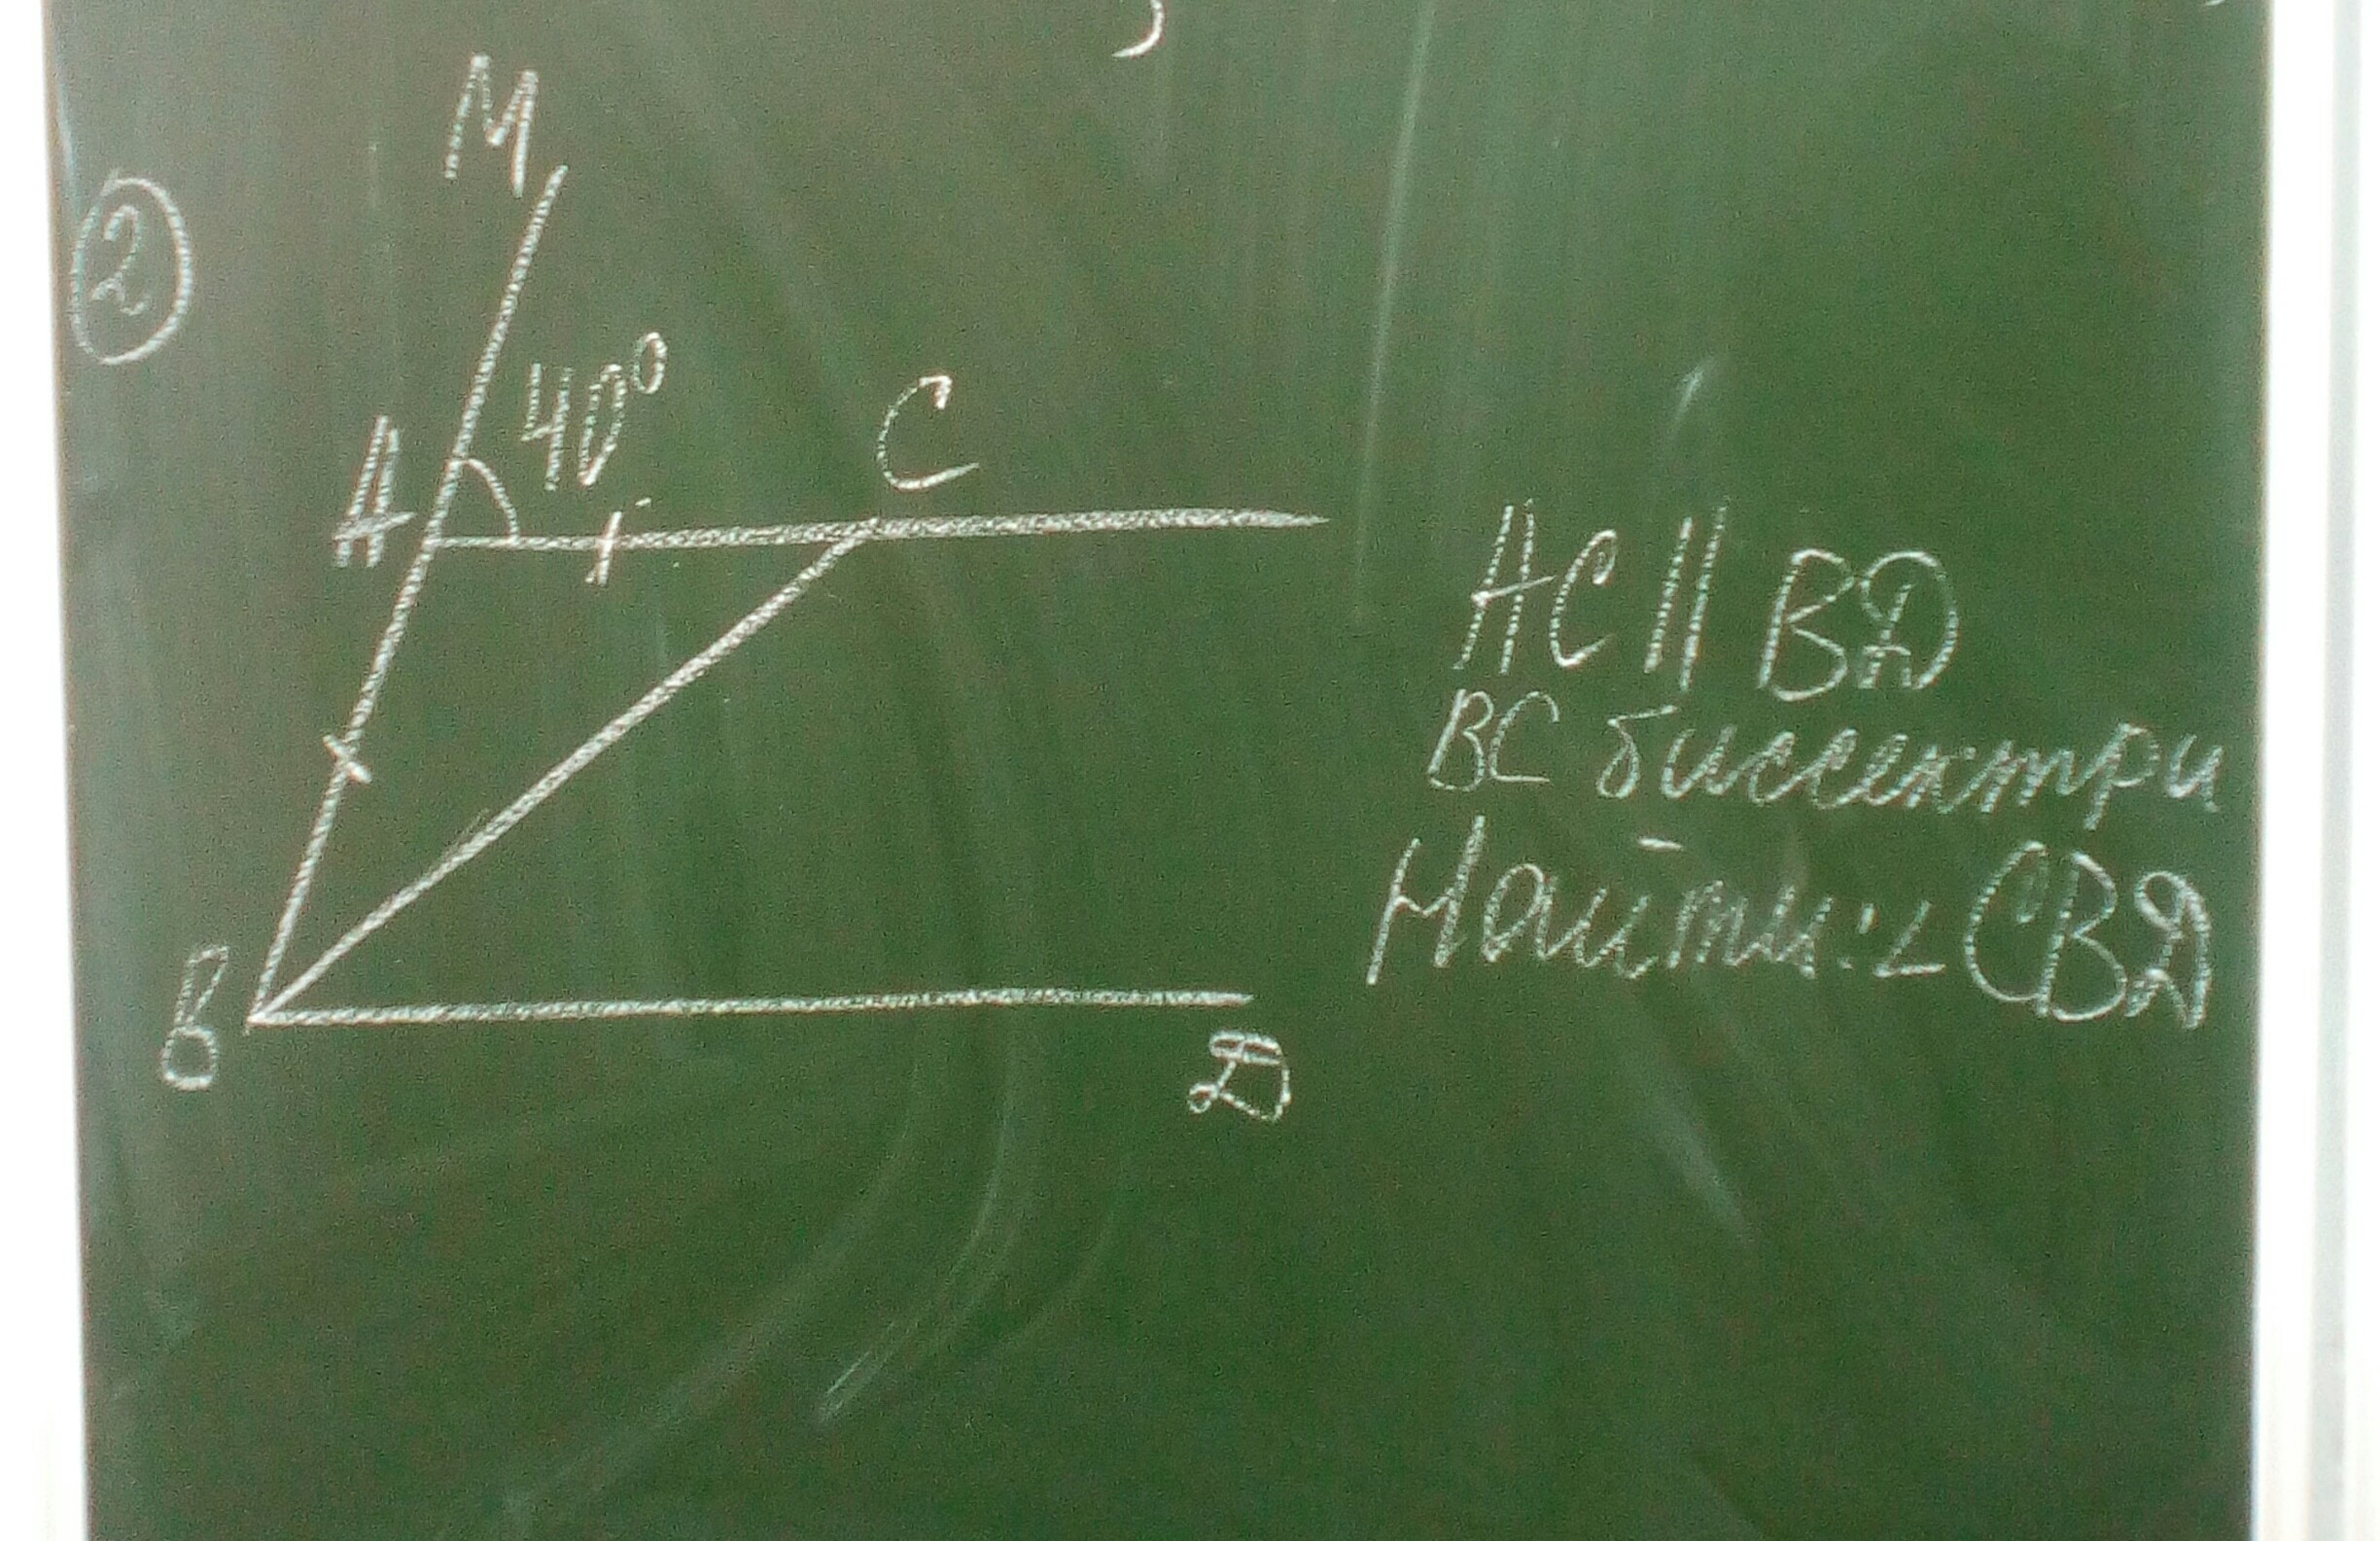 2
M
40°
A
C
B
D
AC || BD
BC биссектри
Найти: ∠ CBD